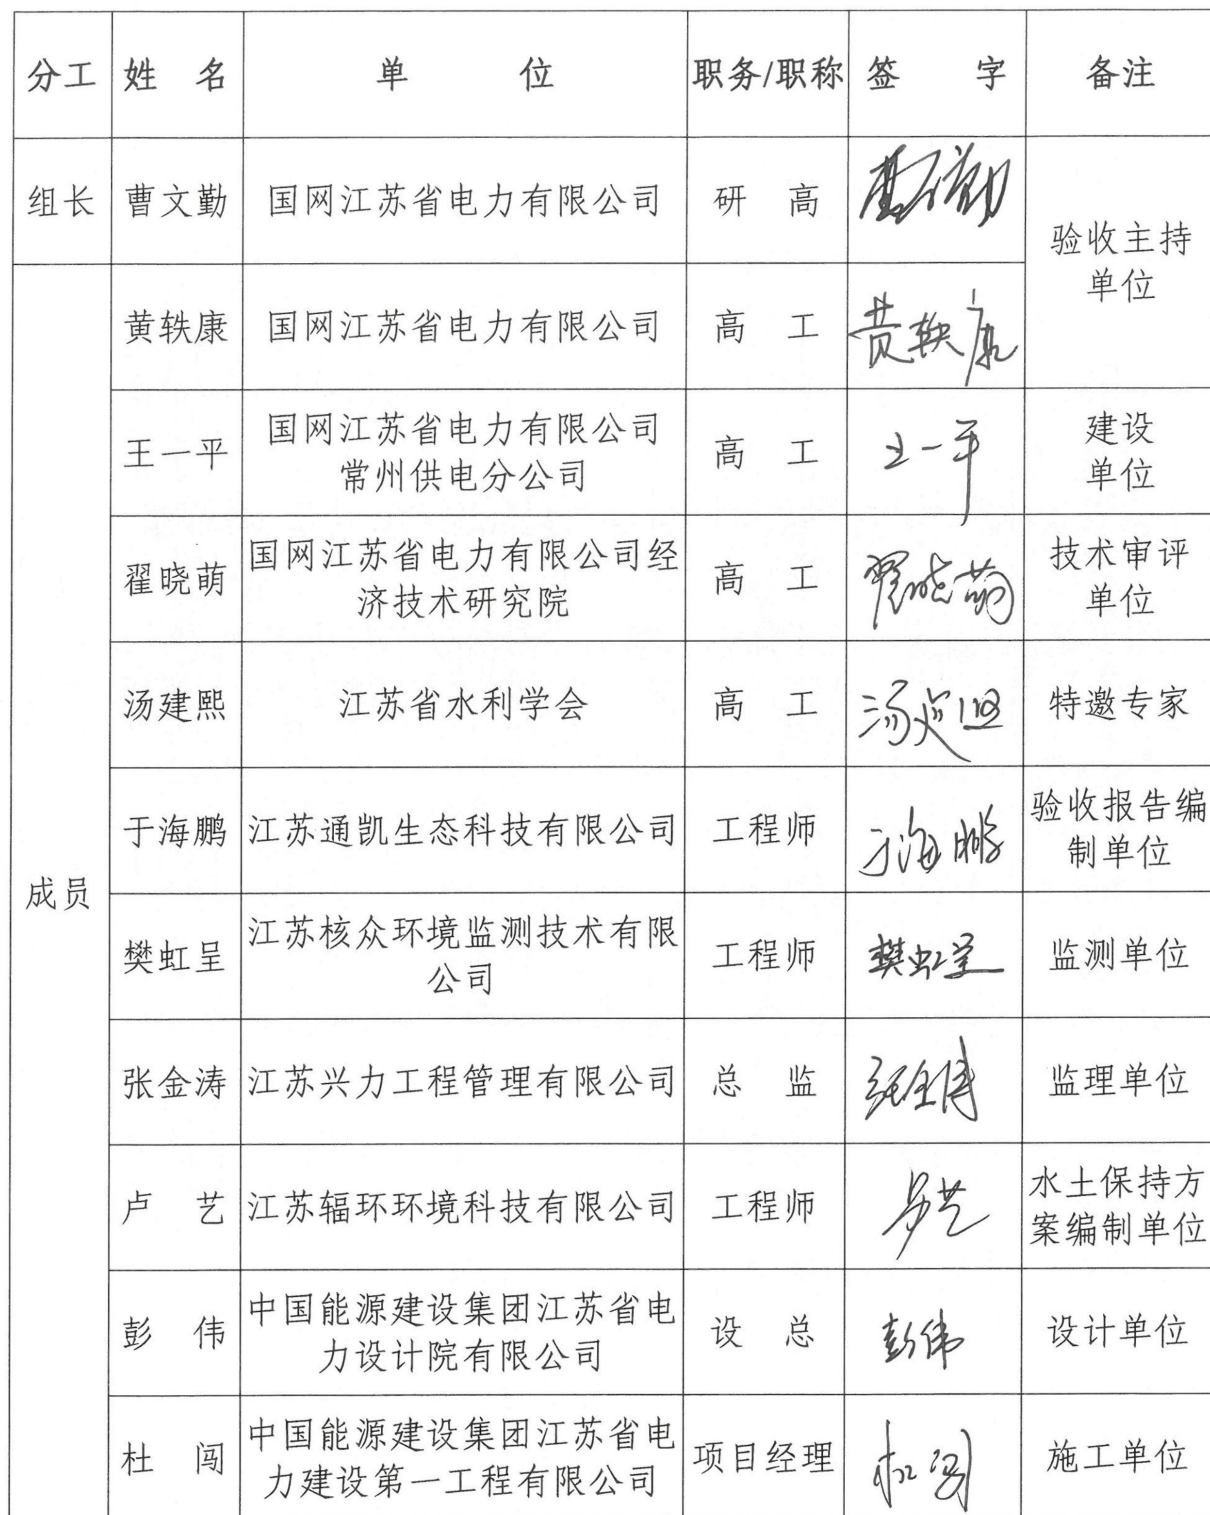 分工 姓 名 单 位 职务/职称 签 字 备注
组长 曹文勤 国网江苏省电力有限公司 研 高 曹文勤
验收主持
单位
黄轶康 国网江苏省电力有限公司 高 工 黄轶康
王一平 国网江苏省电力有限公司
常州供电分公司 高 工 王一平 建设
单位
翟晓萌 国网江苏省电力有限公司经
济技术研究院 高 工 翟晓萌 技术审评
单位
汤建熙 江苏省水利学会 高 工 汤建熙 特邀专家
于海鹏 江苏通凯生态科技有限公司 工程师 于海鹏 验收报告编
制单位
成员
樊虹呈 江苏核众环境监测技术有限
公司 工程师 樊虹呈 监测单位
张金涛 江苏兴力工程管理有限公司 总 监 张金涛 监理单位
卢 艺 江苏辐环环境科技有限公司 工程师 卢艺 水土保持方
案编制单位
彭 伟 中国能源建设集团江苏省电
力设计院有限公司 设 总 彭伟 设计单位
杜 闯 中国能源建设集团江苏省电
力建设第一工程有限公司 项目经理 杜闯 施工单位